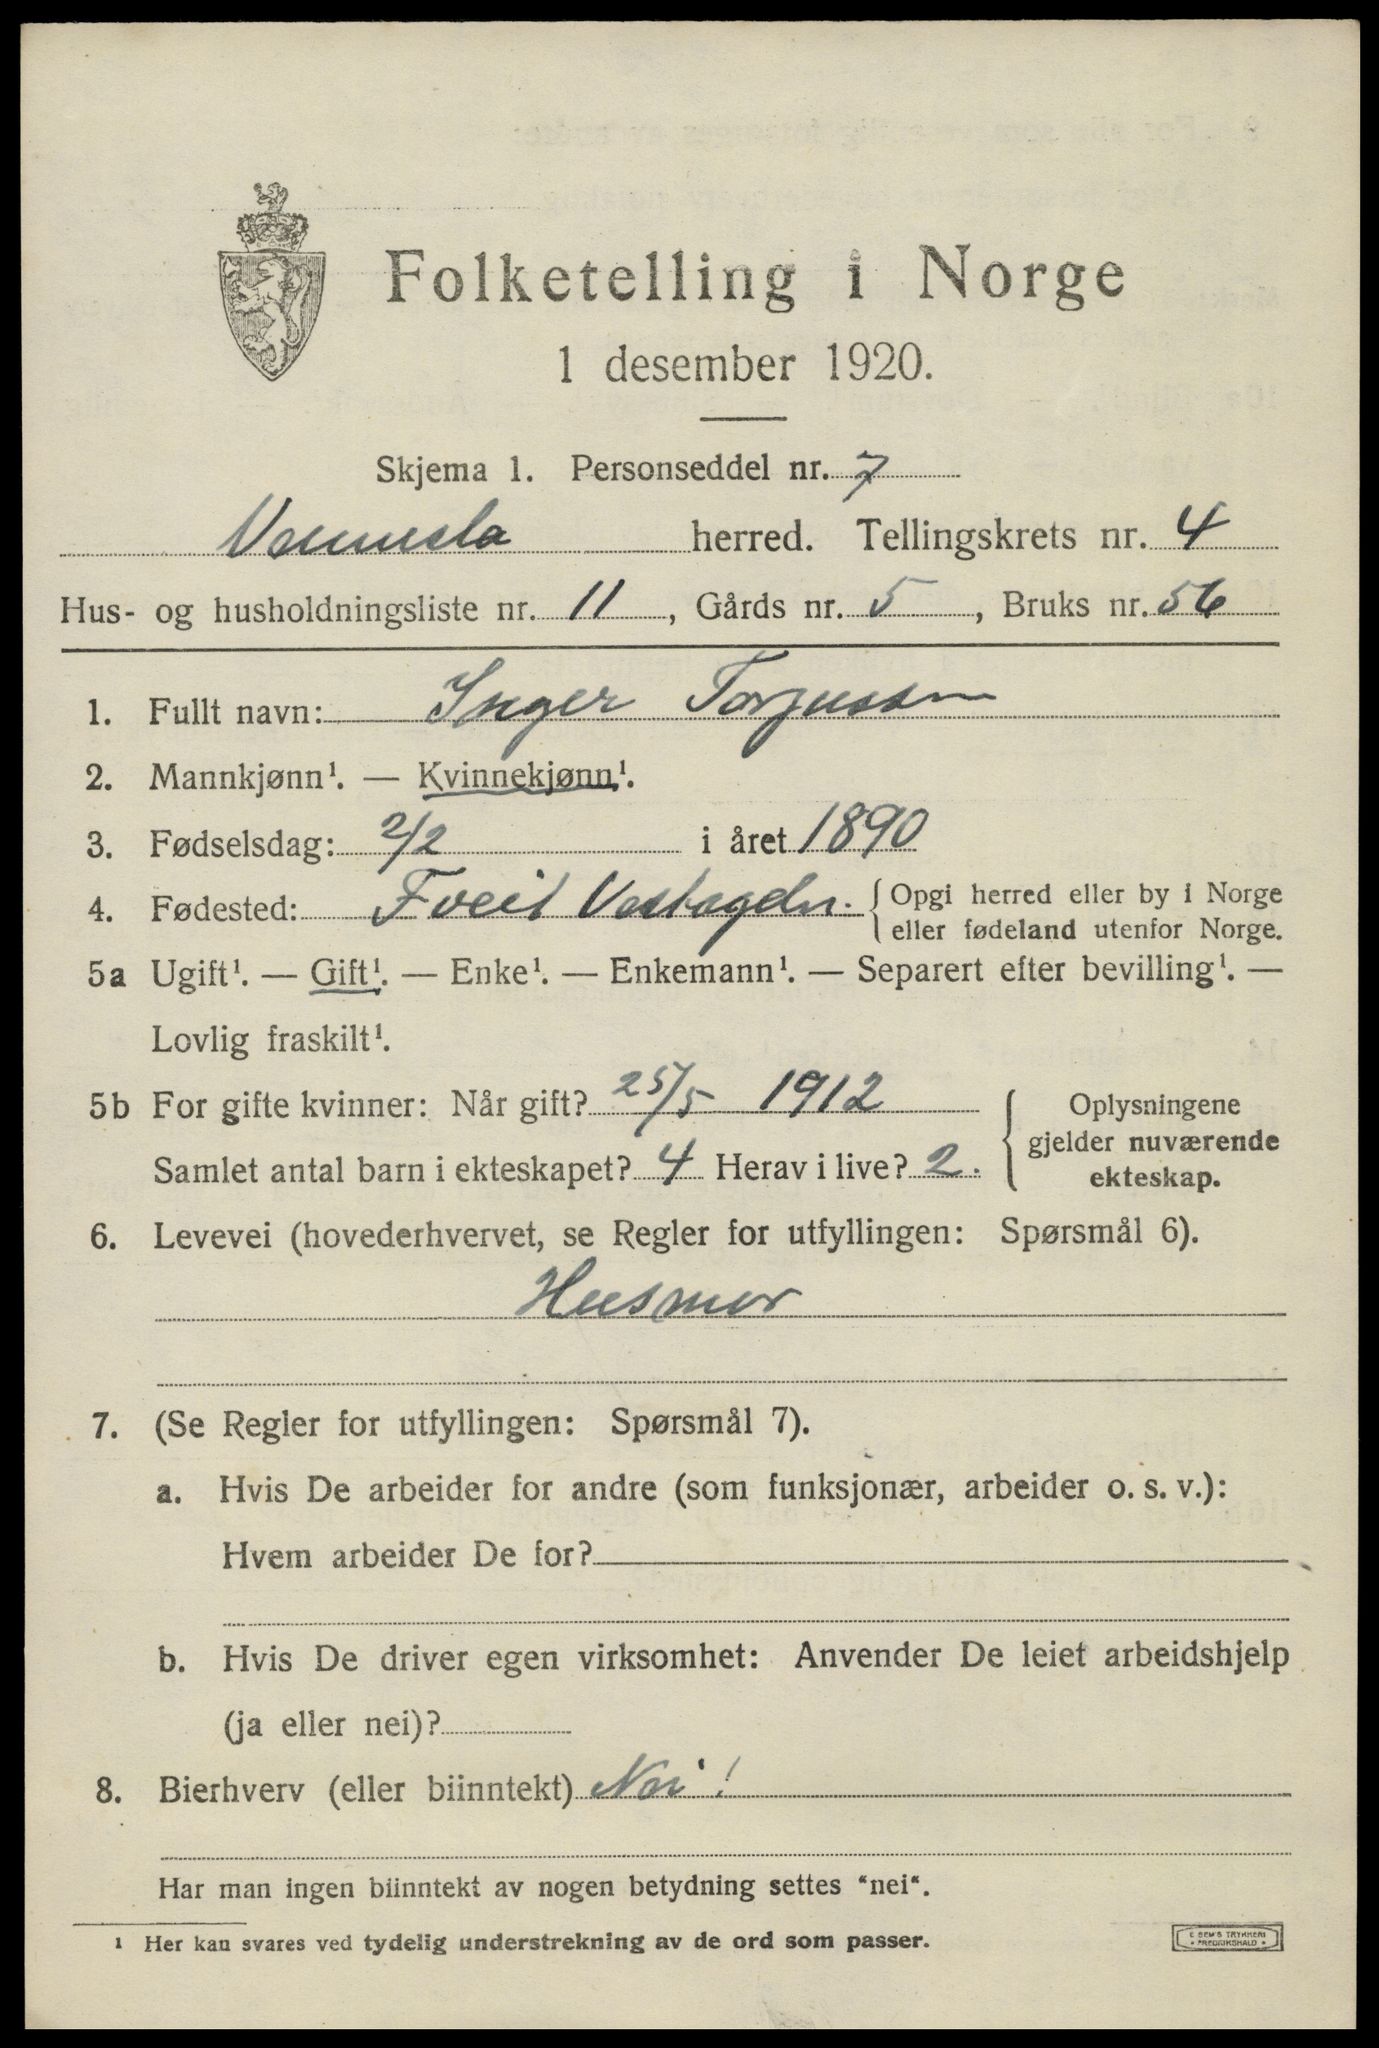 Folketelling i Norge
1 desember 1920.
Skjema 1. Personseddel nr. 7
Vennesla herred. Tellingskrets nr. 4
Hus- og husholdningsliste nr. 11, Gårds nr. 5, Bruks nr. 56
1. Fullt navn: Inger Torjussen
2. Mannkjønn¹. — Kvinnekjønn¹.
3. Fødselsdag: 2/2 i året 1890
4. Fødested: Tveit Vestagder. { Opgi herred eller by i Norge
eller fødeland utenfor Norge.
5a Ugift¹. — Gift¹. — Enke¹. — Enkemann¹. — Separert efter bevilling¹. —
Lovlig fraskilt¹.
5b For gifte kvinner: Når gift? 25/5 1912
Samlet antal barn i ekteskapet? 4 Herav i live? 2.
Oplysningene
gjelder nuværende
ekteskap.
6. Levevei (hovederhvervet, se Regler for utfyllingen: Spørsmål 6).
Husmor
7. (Se Regler for utfyllingen: Spørsmål 7).
a. Hvis De arbeider for andre (som funksjonær, arbeider o. s. v.):
Hvem arbeider De for?
b. Hvis De driver egen virksomhet: Anvender De leiet arbeidshjelp
(ja eller nei)?
8. Bierhverv (eller biinntekt) Nei!
Har man ingen biinntekt av nogen betydning settes "nei".
¹ Her kan svares ved tydelig understrekning av de ord som passer.
E SEM'S TRYKKERI
FREDRIKSHALD